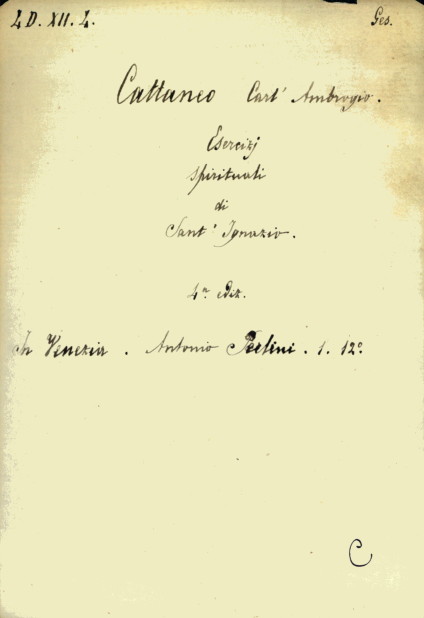 4 D. XII. 4.
Ges.
Cattaneo Carl' Ambrogio.
Esercizj
spirituali
di
Sant' Ignazio.
4ª. ediz.
In Venezia. Antonio Perlini. 1. 12º.
C